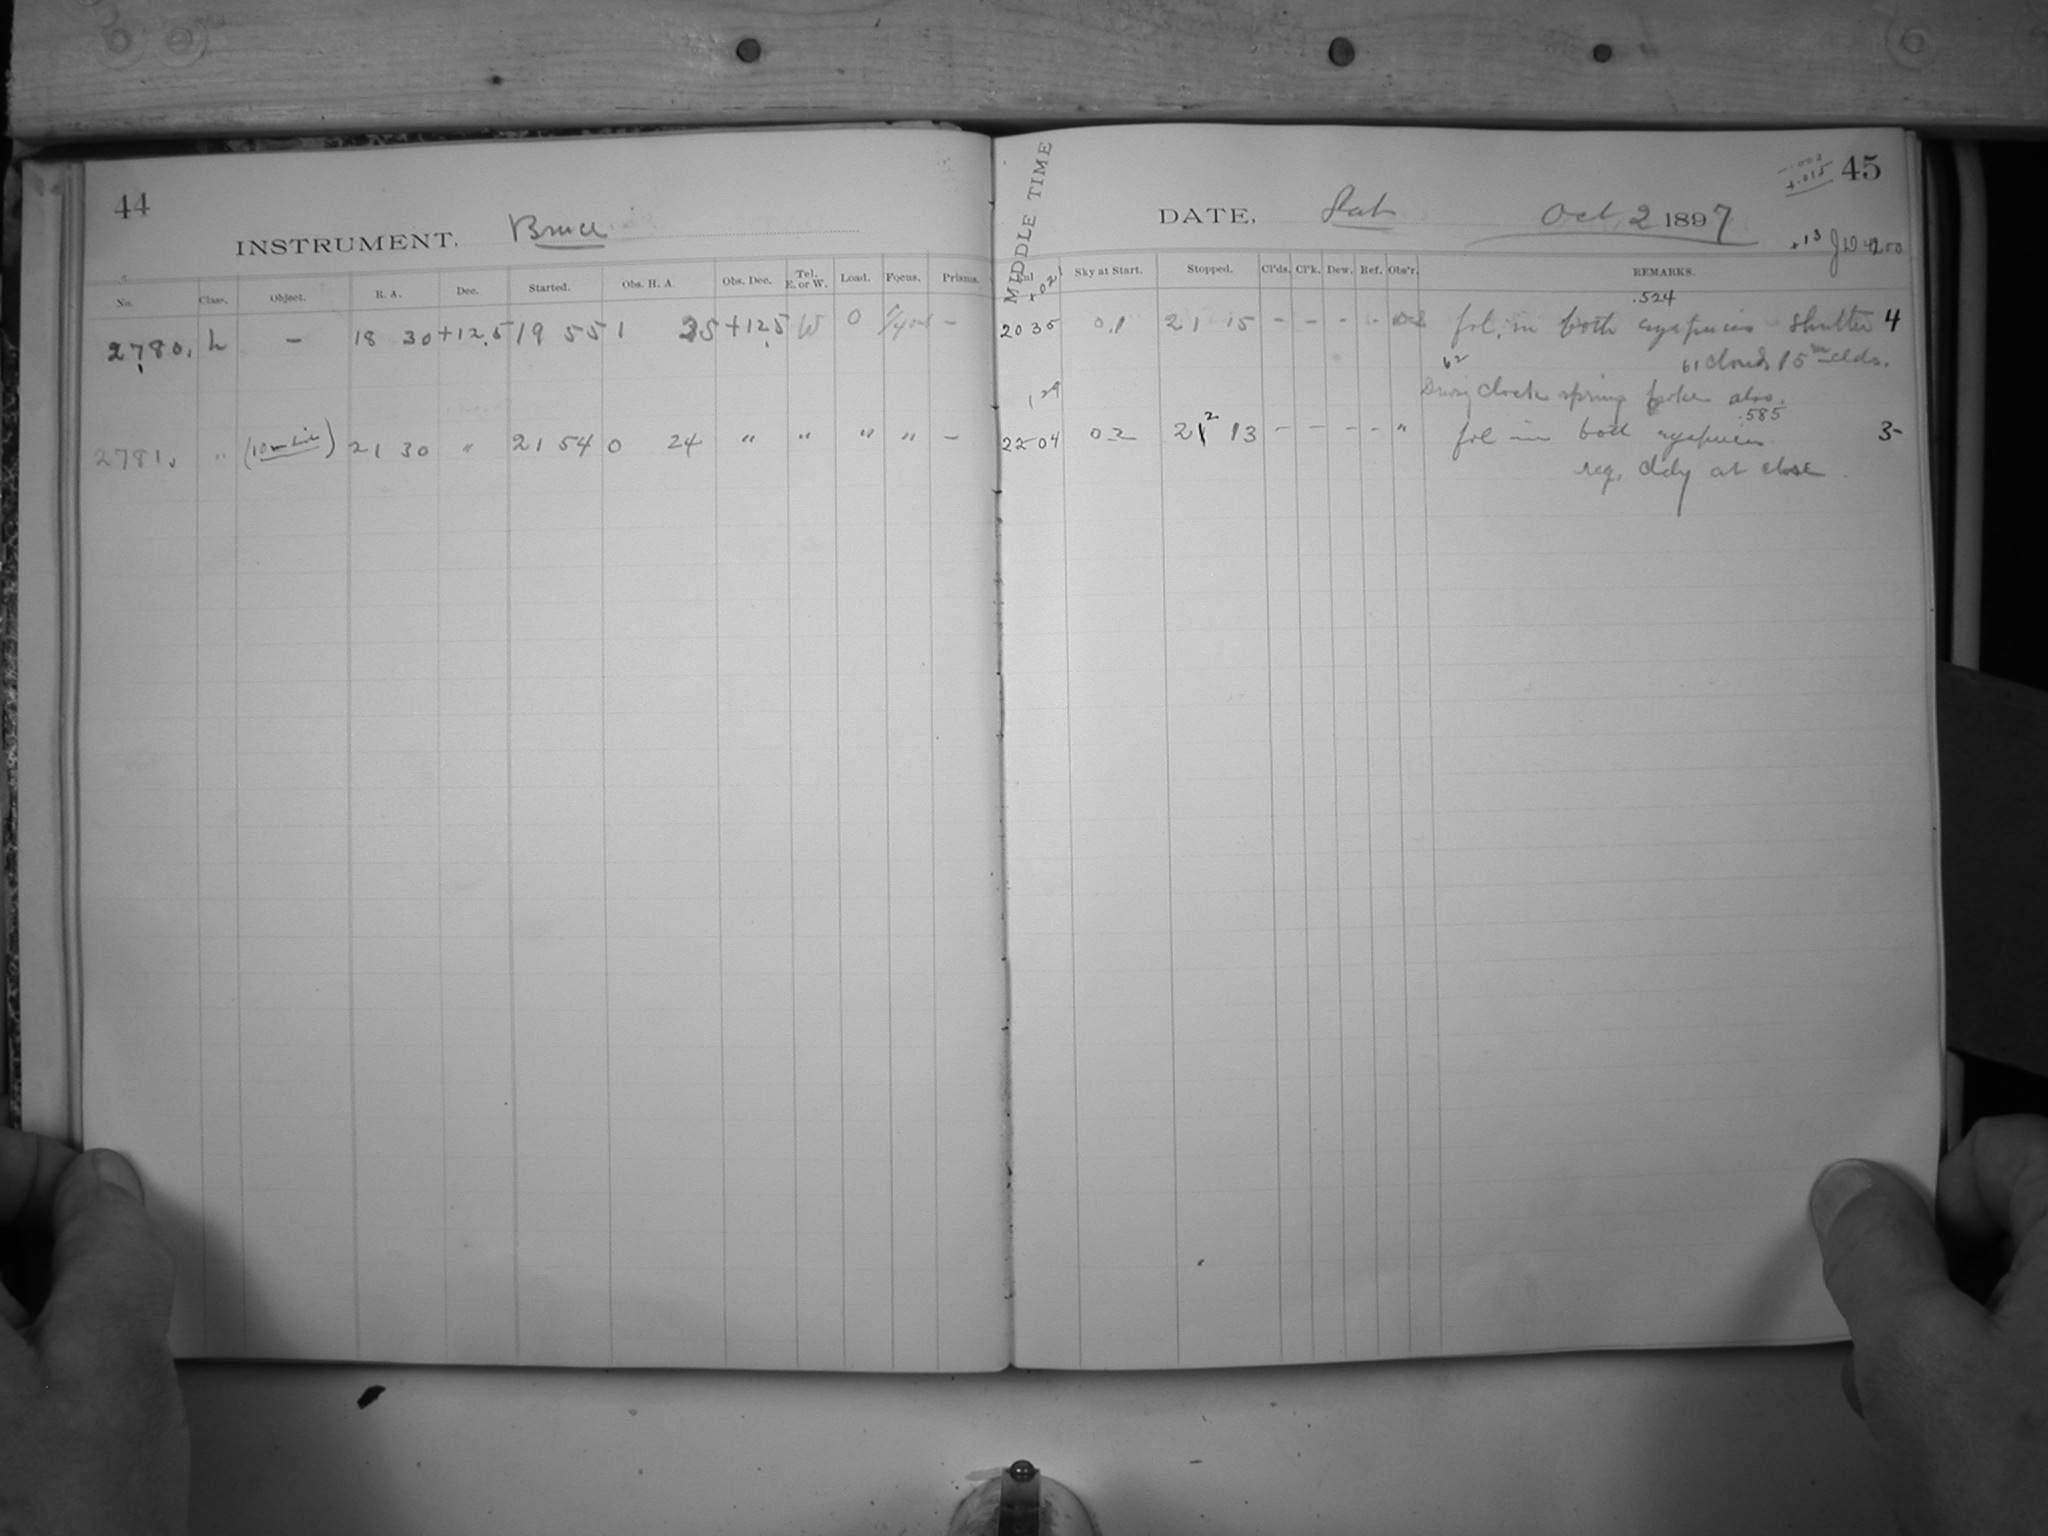 44
INSTRUMENT. Bruce
No. Class. Object. R. A. Dec. Started. Obs. H. A. Obs. Dec. Tel. E. or W. Load. Focus. Prisms.
2780. L – 18 30 +12.5 19 55 1 25 +12.5 W 0 –
2781. " (10 m ) 21 30 " 21 54 0 24 " " " " –
MIDDLE TIME
DATE, Sat Oct 2 1897
45
-.002
+.015
+13 JD 4200
Sky at Start. Stopped. Cl'ds. Cl'k. Dew. Ref. Obs'r. REMARKS.
+021
.524
20 35 0.1 21 15 – – – – fol. in both eyepieces Shutter 4
62 61 clouds 15m clds.
129 Driving clock spring broke also.
.585
22 04 02 21 2 13 – – – – " fol in both eyepieces 3-
reg. cldy at close